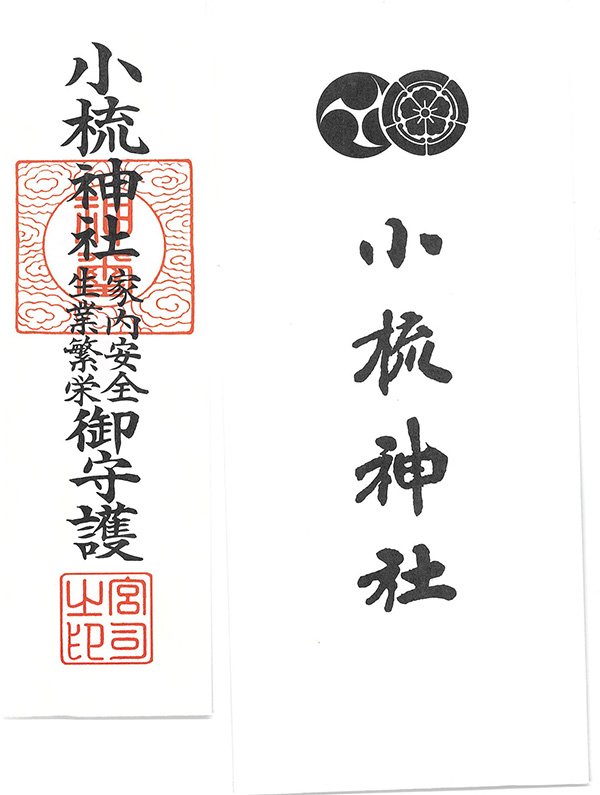 小梳神社
家内安全
生業繁栄
御守護
宮司之印
小梳神社